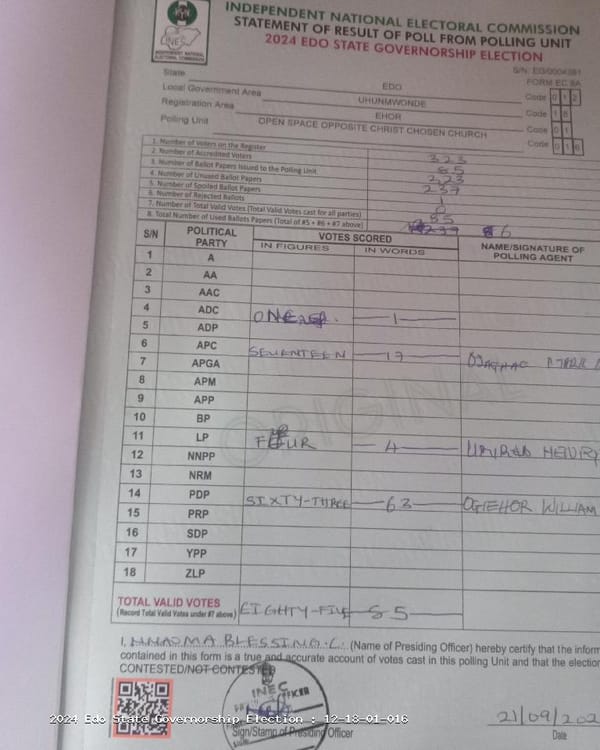 INDEPENDENT NATIONAL ELECTORAL COMMISSION
STATEMENT OF RESULT OF POLL FROM POLLING UNIT
2024 EDO STATE GOVERNORSHIP ELECTION
INEC
INDEPENDENT NATIONAL
ELECTORAL COMMISSION
FORM EC 8A
State EDO Code 0 1 2
Local Government Area UHUNMWONDE Code 1 8
Registration Area EHOR Code 0 1
Polling Unit OPEN SPACE OPPOSITE CHRIST CHOSEN CHURCH Code 0 1 6
1. Number of Voters on the Register 323
2. Number of Accredited Voters 85
3. Number of Ballot Papers Issued to the Polling Unit 323
4. Number of Unused Ballot Papers 237
5. Number of Spoiled Ballot Papers 1
6. Number of Rejected Ballots 0
7. Number of Total Valid Votes (Total Valid Votes cast for all parties) 85
8. Total Number of Used Ballots Papers (Total of #5 + #6 + #7 above) 86
S/N POLITICAL PARTY VOTES SCORED NAME/SIGNATURE OF POLLING AGENT
IN FIGURES IN WORDS
1 A
2 AA
3 AAC
4 ADC ONE 1
5 ADP
6 APC SEVENTEEN 17
7 APGA
8 APM
9 APP
10 BP
11 LP FOUR 4
12 NNPP
13 NRM
14 PDP SIXTY-THREE 63 WILLIAM
15 PRP
16 SDP
17 YPP
18 ZLP
TOTAL VALID VOTES EIGHTY-FIVE 85
(Record Total Valid Votes under #7 above)
I, NNAOMA BLESSING .C. (Name of Presiding Officer) hereby certify that the inform
contained in this form is a true and accurate account of votes cast in this polling Unit and that the election
CONTESTED/NOT CONTESTED
INEC
21/09/202
Sign/Stamp of Presiding Officer Date
2024 Edo State Governorship Election : 12-18-01-016
ORIGINAL